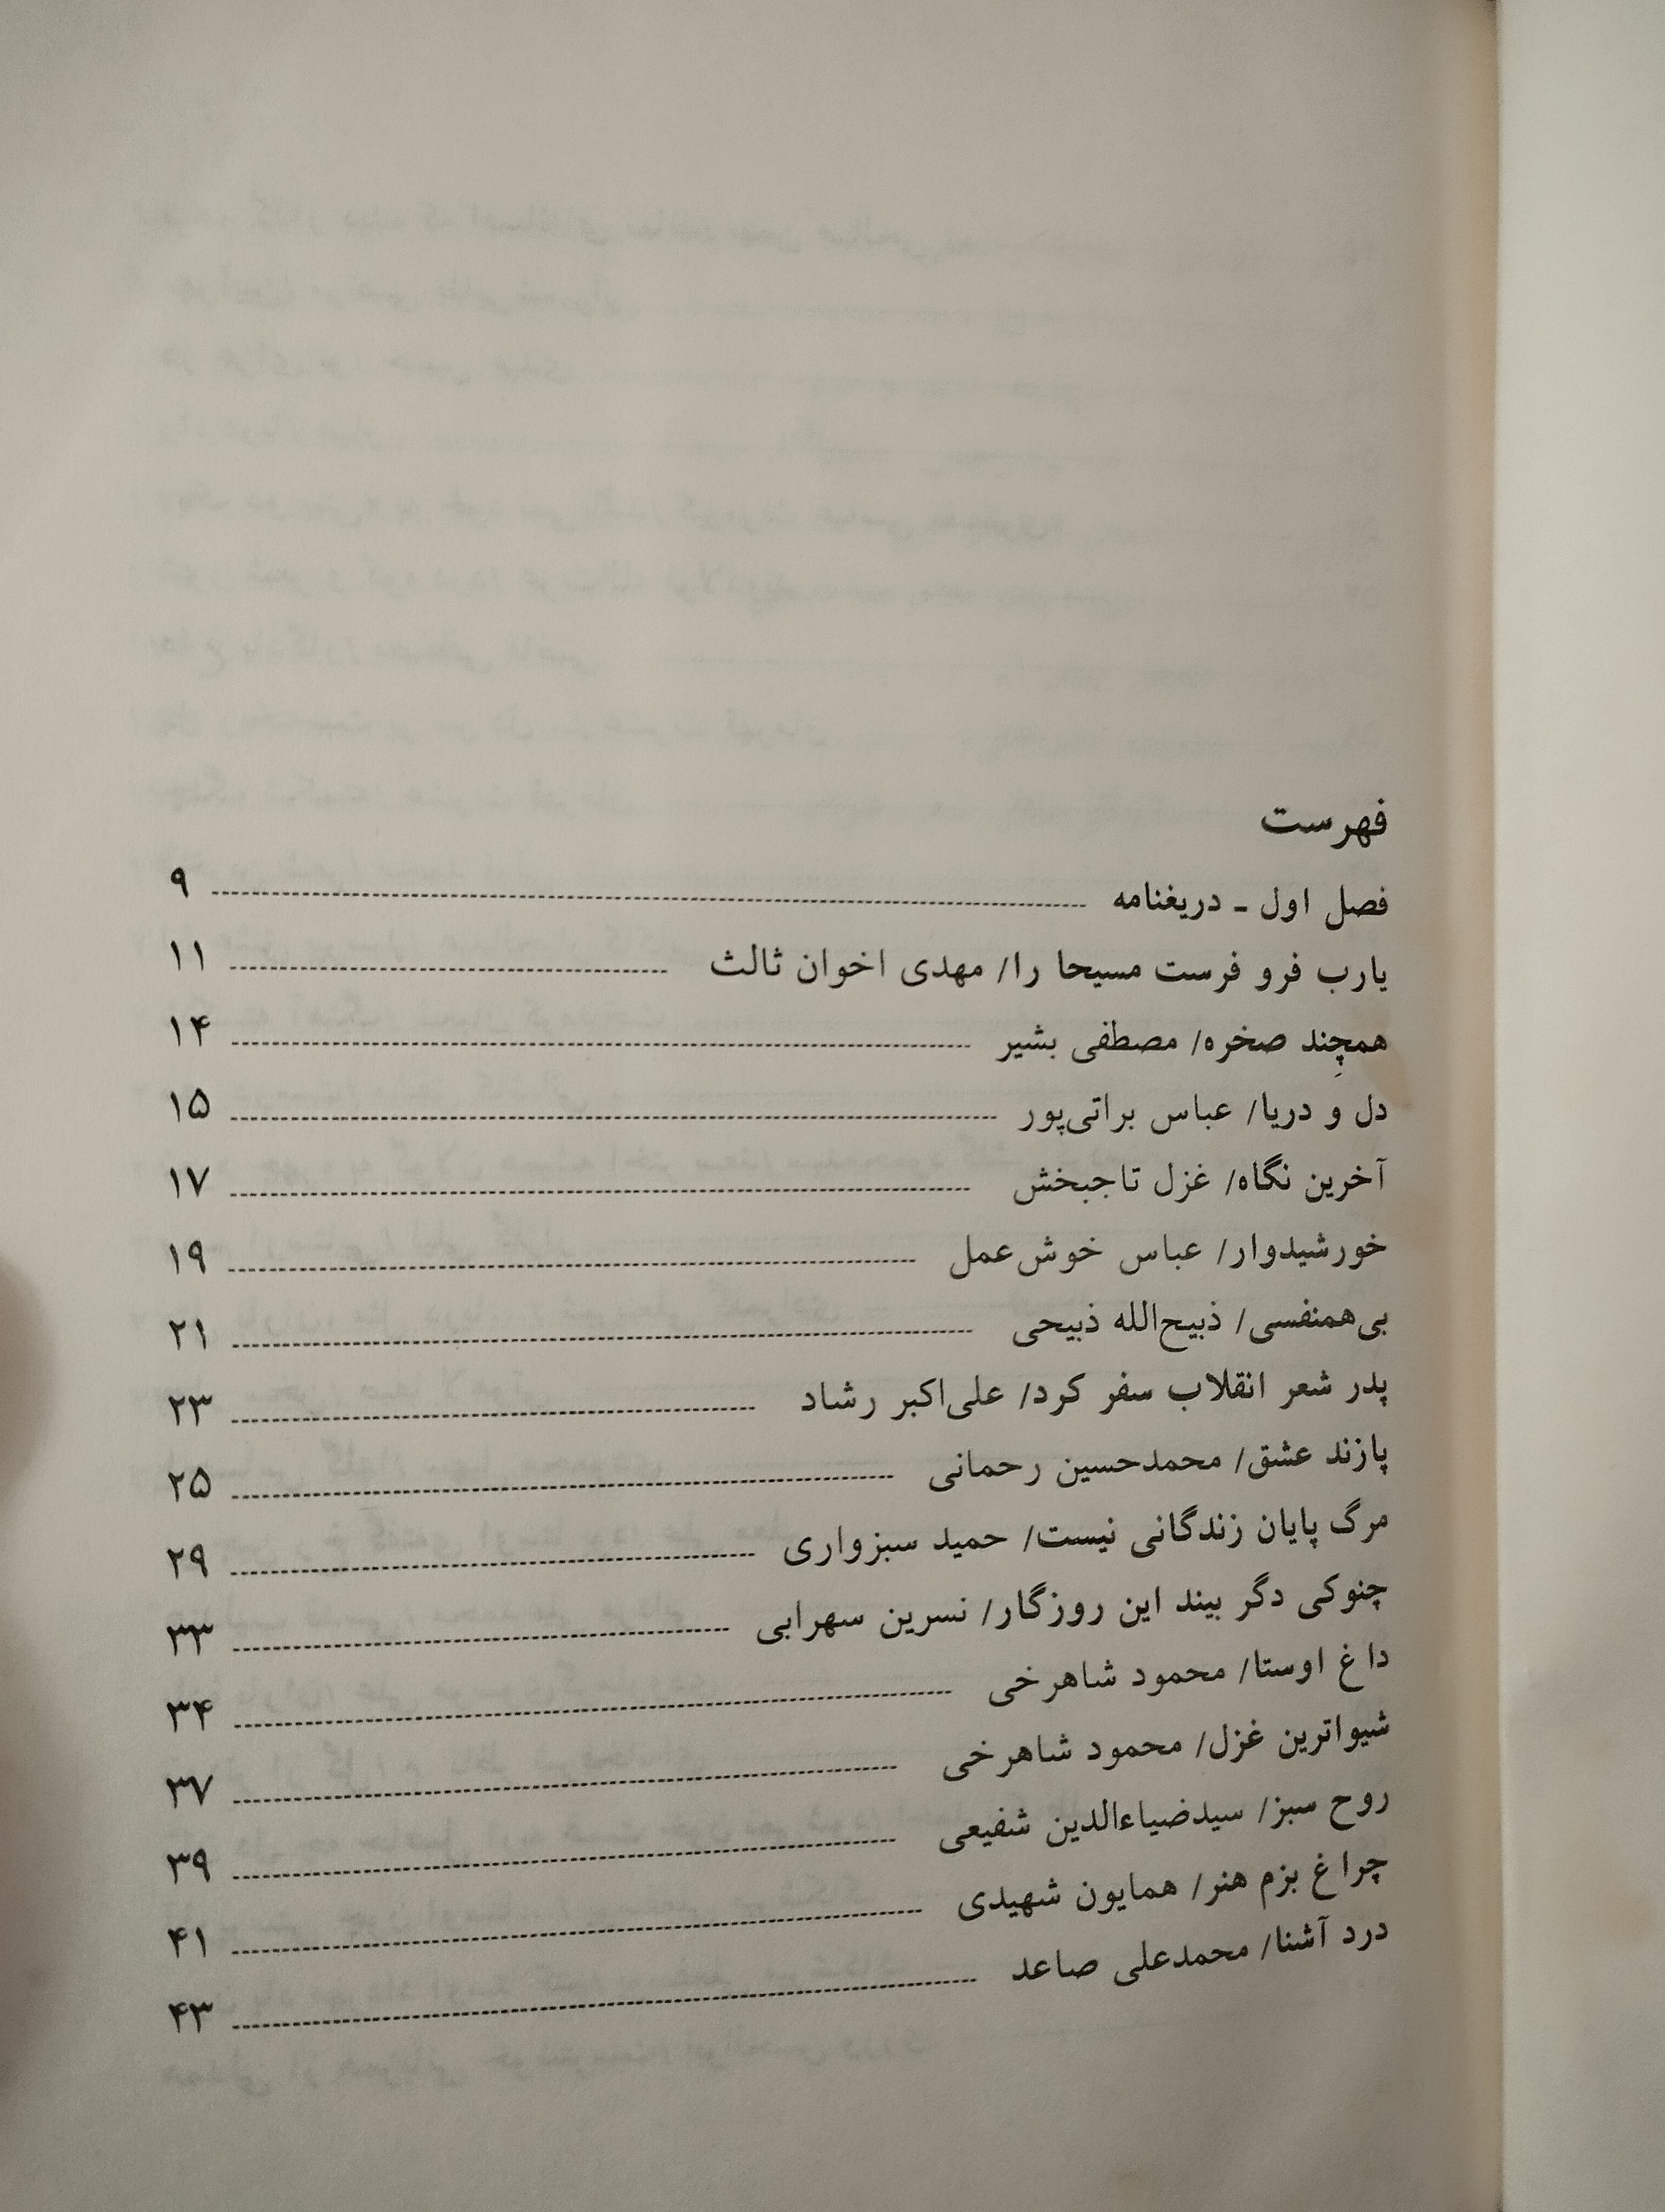 فهرست
فصل اول ـ دریغنامه ........................ ۹
یارب فرو فرست مسیحا را/ مهدی اخوان ثالث ........................ ۱۱
همچِند صخره/ مصطفی بشیر ........................ ۱۴
دل و دریا/ عباس براتی‌پور ........................ ۱۵
آخرین نگاه/ غزل تاجبخش ........................ ۱۷
خورشیدوار/ عباس خوش‌عمل ........................ ۱۹
بی‌همنفسی/ ذبیح‌الله ذبیحی ........................ ۲۱
پدر شعر انقلاب سفر کرد/ علی‌اکبر رشاد ........................ ۲۳
پازند عشق/ محمدحسین رحمانی ........................ ۲۵
مرگ پایان زندگانی نیست/ حمید سبزواری ........................ ۲۹
چنوکی دگر بیند این روزگار/ نسرین سهرابی ........................ ۳۳
داغ اوستا/ محمود شاهرخی ........................ ۳۴
شیواترین غزل/ محمود شاهرخی ........................ ۳۷
روح سبز/ سیدضیاءالدین شفیعی ........................ ۳۹
چراغ بزم هنر/ همایون شهیدی ........................ ۴۱
درد آشنا/ محمدعلی صاعد ........................ ۴۳